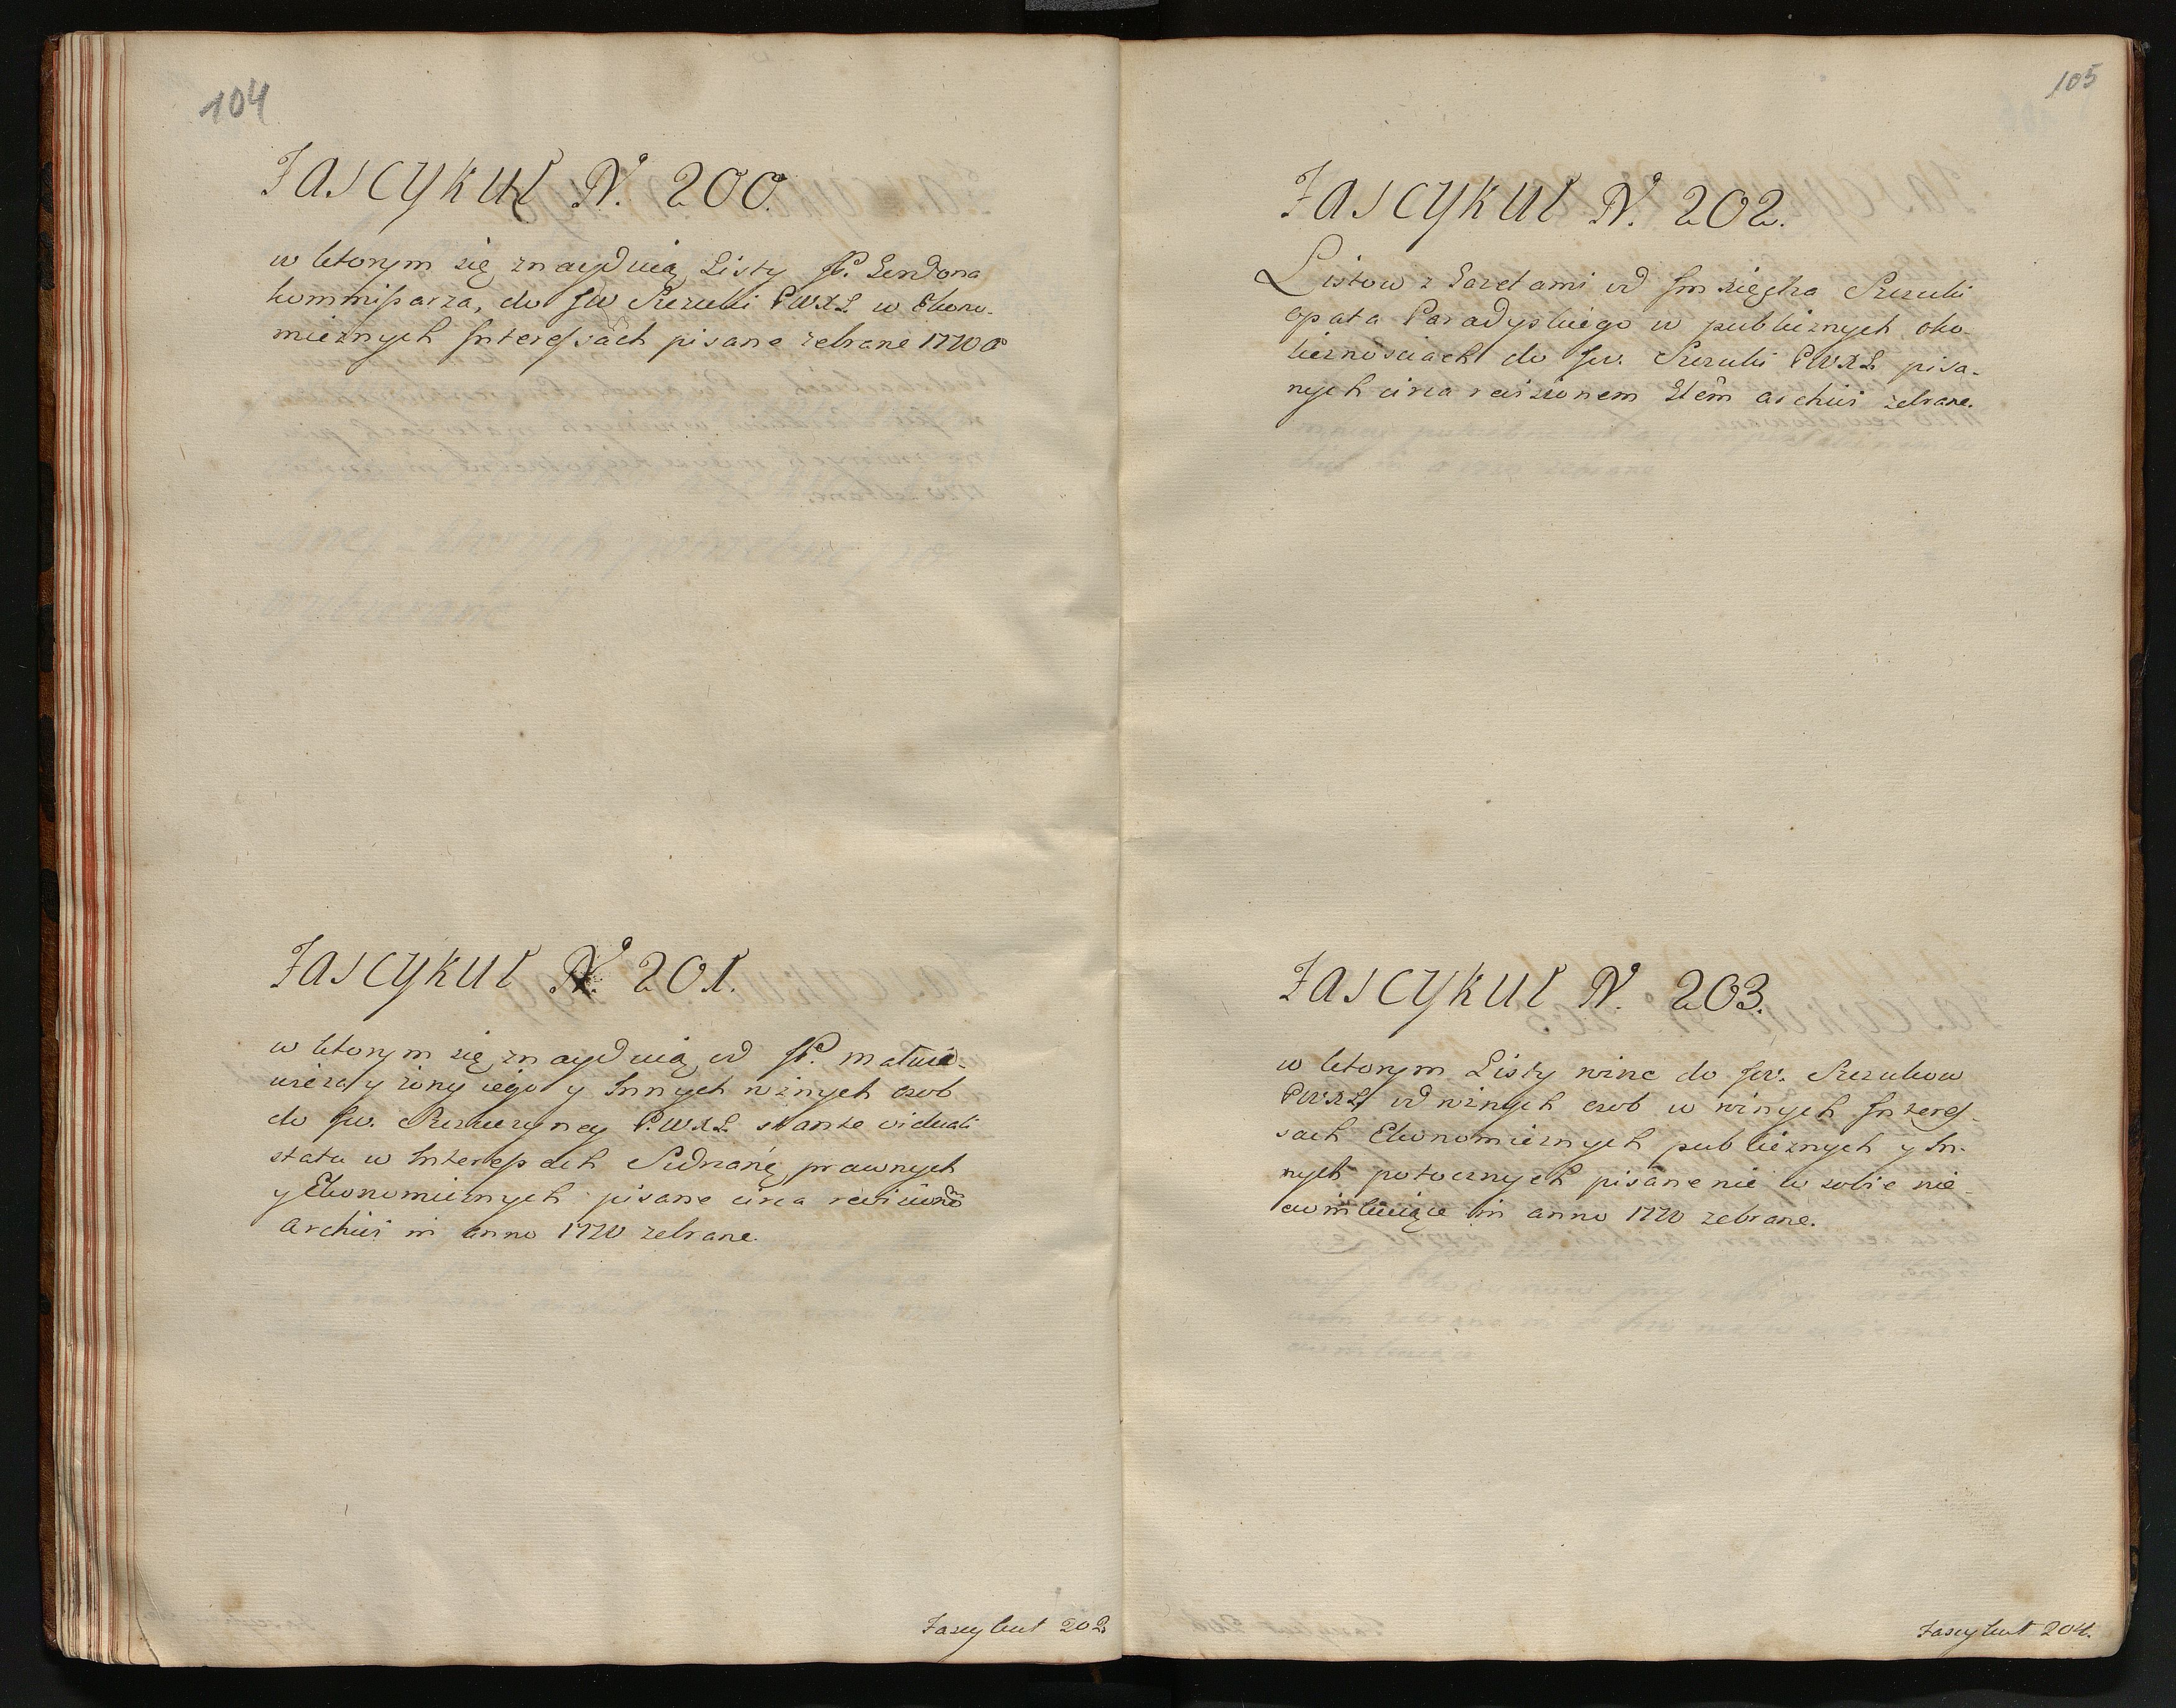 104
Fascykuł N. 200.
w ktorym się znayduią Listy JP. Gerdona
kommissarza, do JW Szczuki PWXL w Ekono-
micznych Interessach pisane zebrane 1770
Fascykuł N. 201.
w ktorym się znayduią od JP.
y zony iego y Innych roznych osob
do JW. P.WXL. stante viduali
statu w Interessach prawnych
y Ekonomicznych pisane circa revisionem
Archivi in anno 1770 zebrane.
Fascykuł 202
105
Fascykuł N. 202.
Listow z Gazetami od Jm xiędza Szczuki
opata Paradyskiego w publicznych oko-
licznosciach do JW. Szczuki PWXL pisa-
nych circa revisionem archivi zebrane.
Fascykuł N. 203.
w ktorym Listy rozne do JW. Szczukow
PWXL od roznych osob w roznych Interes-
sach Ekonomicznych publicznych y In-
nych potocznych pisane nic w sobie nie-
in anno 1770 zebrane.
Fascykuł 204.